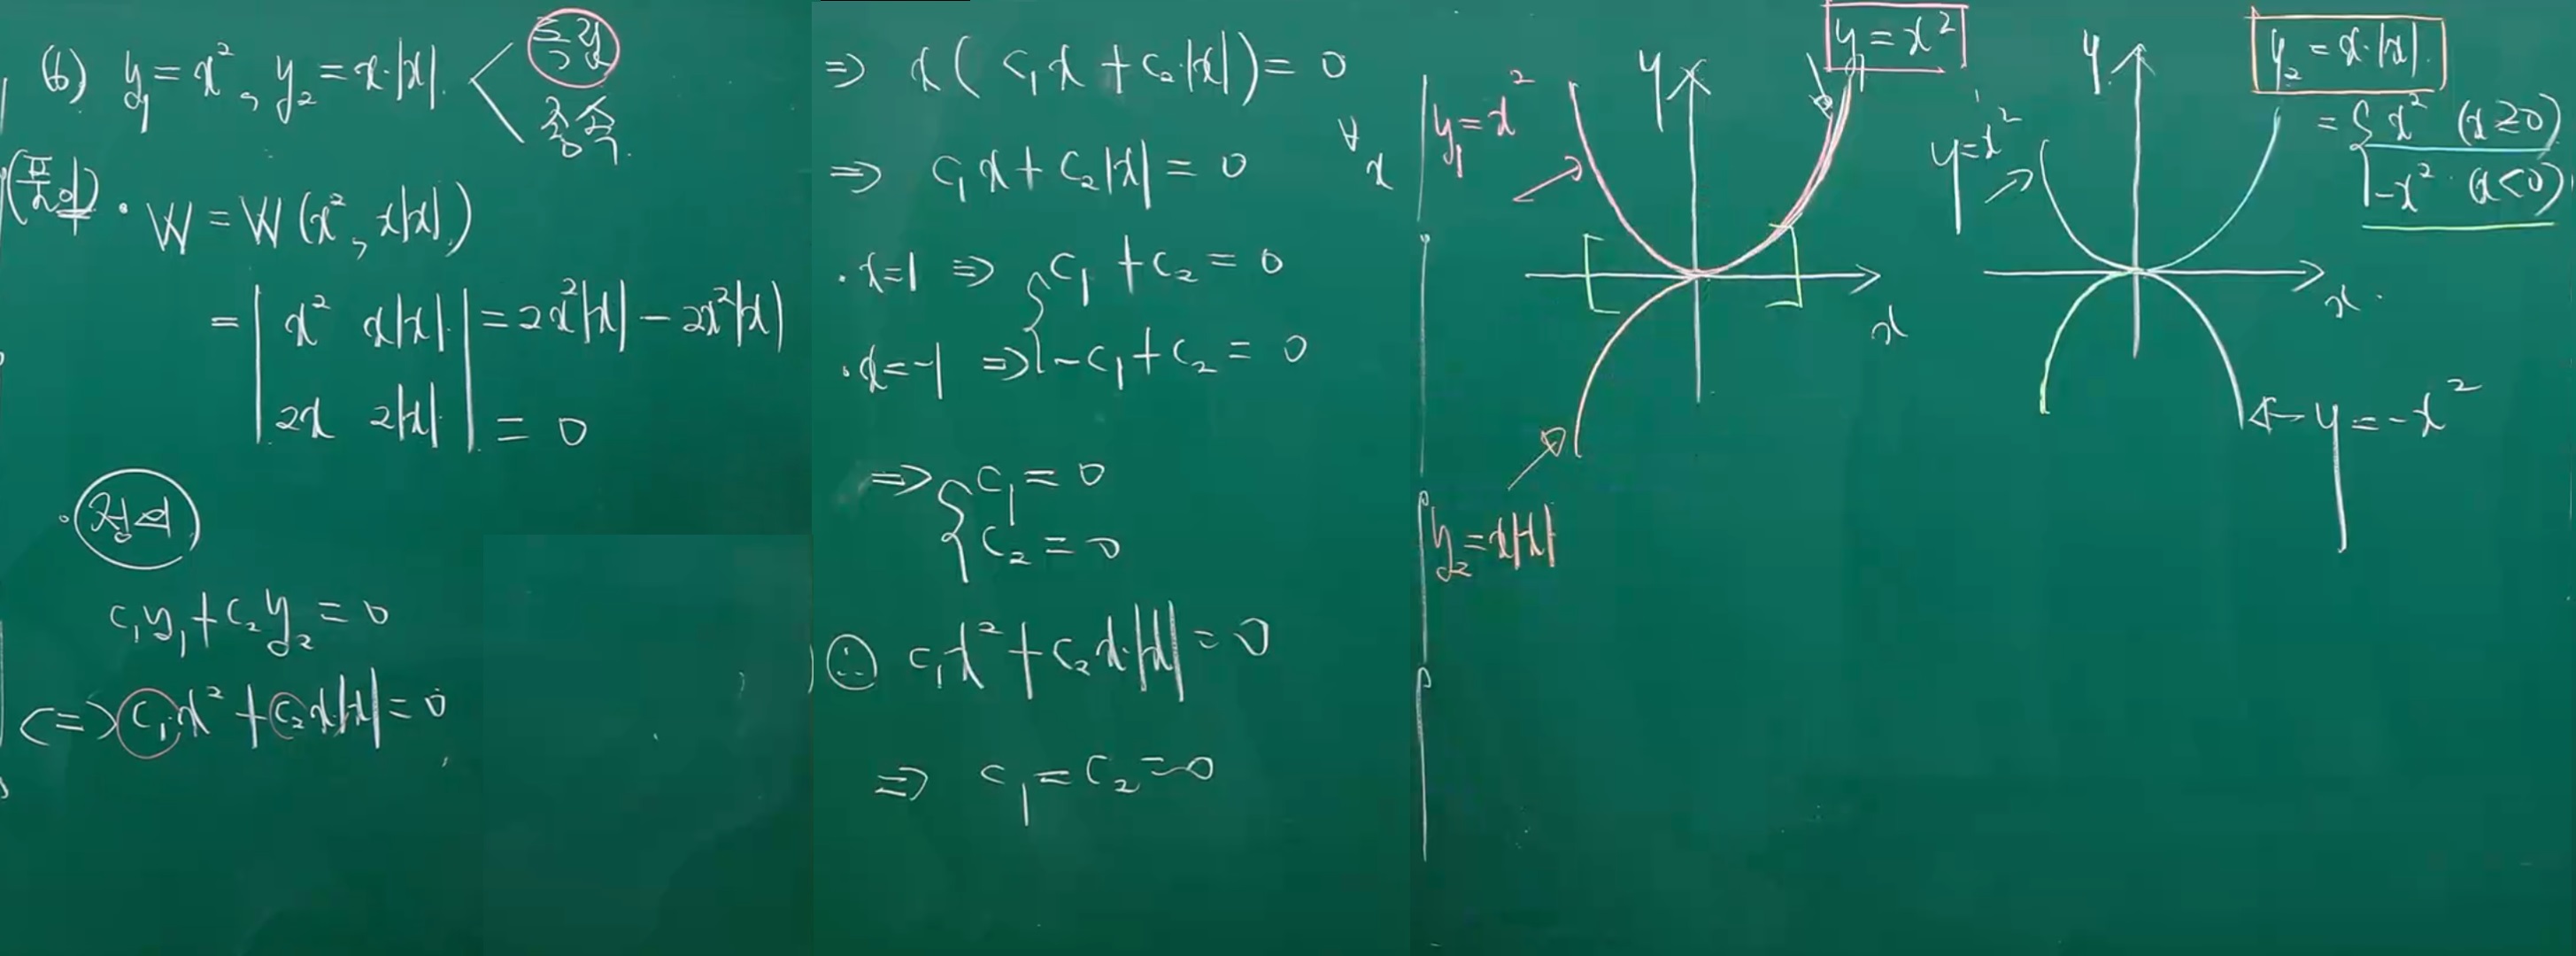 (6) y₁ = x², y₂ = x·|x| < 독립
종속
(풀이) · W = W(x², x|x|)
= | x² x|x| | = 2x²|x| - 2x²|x|
| 2x 2|x| | = 0
· 정의
c₁y₁ + c₂y₂ = 0
<=> c₁x² + c₂x|x| = 0
=> x(c₁x + c₂|x|) = 0
=> c₁x + c₂|x| = 0 ∀x
· x=1 => { c₁ + c₂ = 0
· x=-1 => { -c₁ + c₂ = 0
=> { c₁ = 0
c₂ = 0
∴ c₁x² + c₂x·|x| = 0
=> c₁ = c₂ = 0
y₁ = x²
y
y₁ = x²
x
y₂ = x|x|
y
y₂ = x·|x|
= { x² (x≥0)
-x² (x<0)
y = x²
x
y = -x²